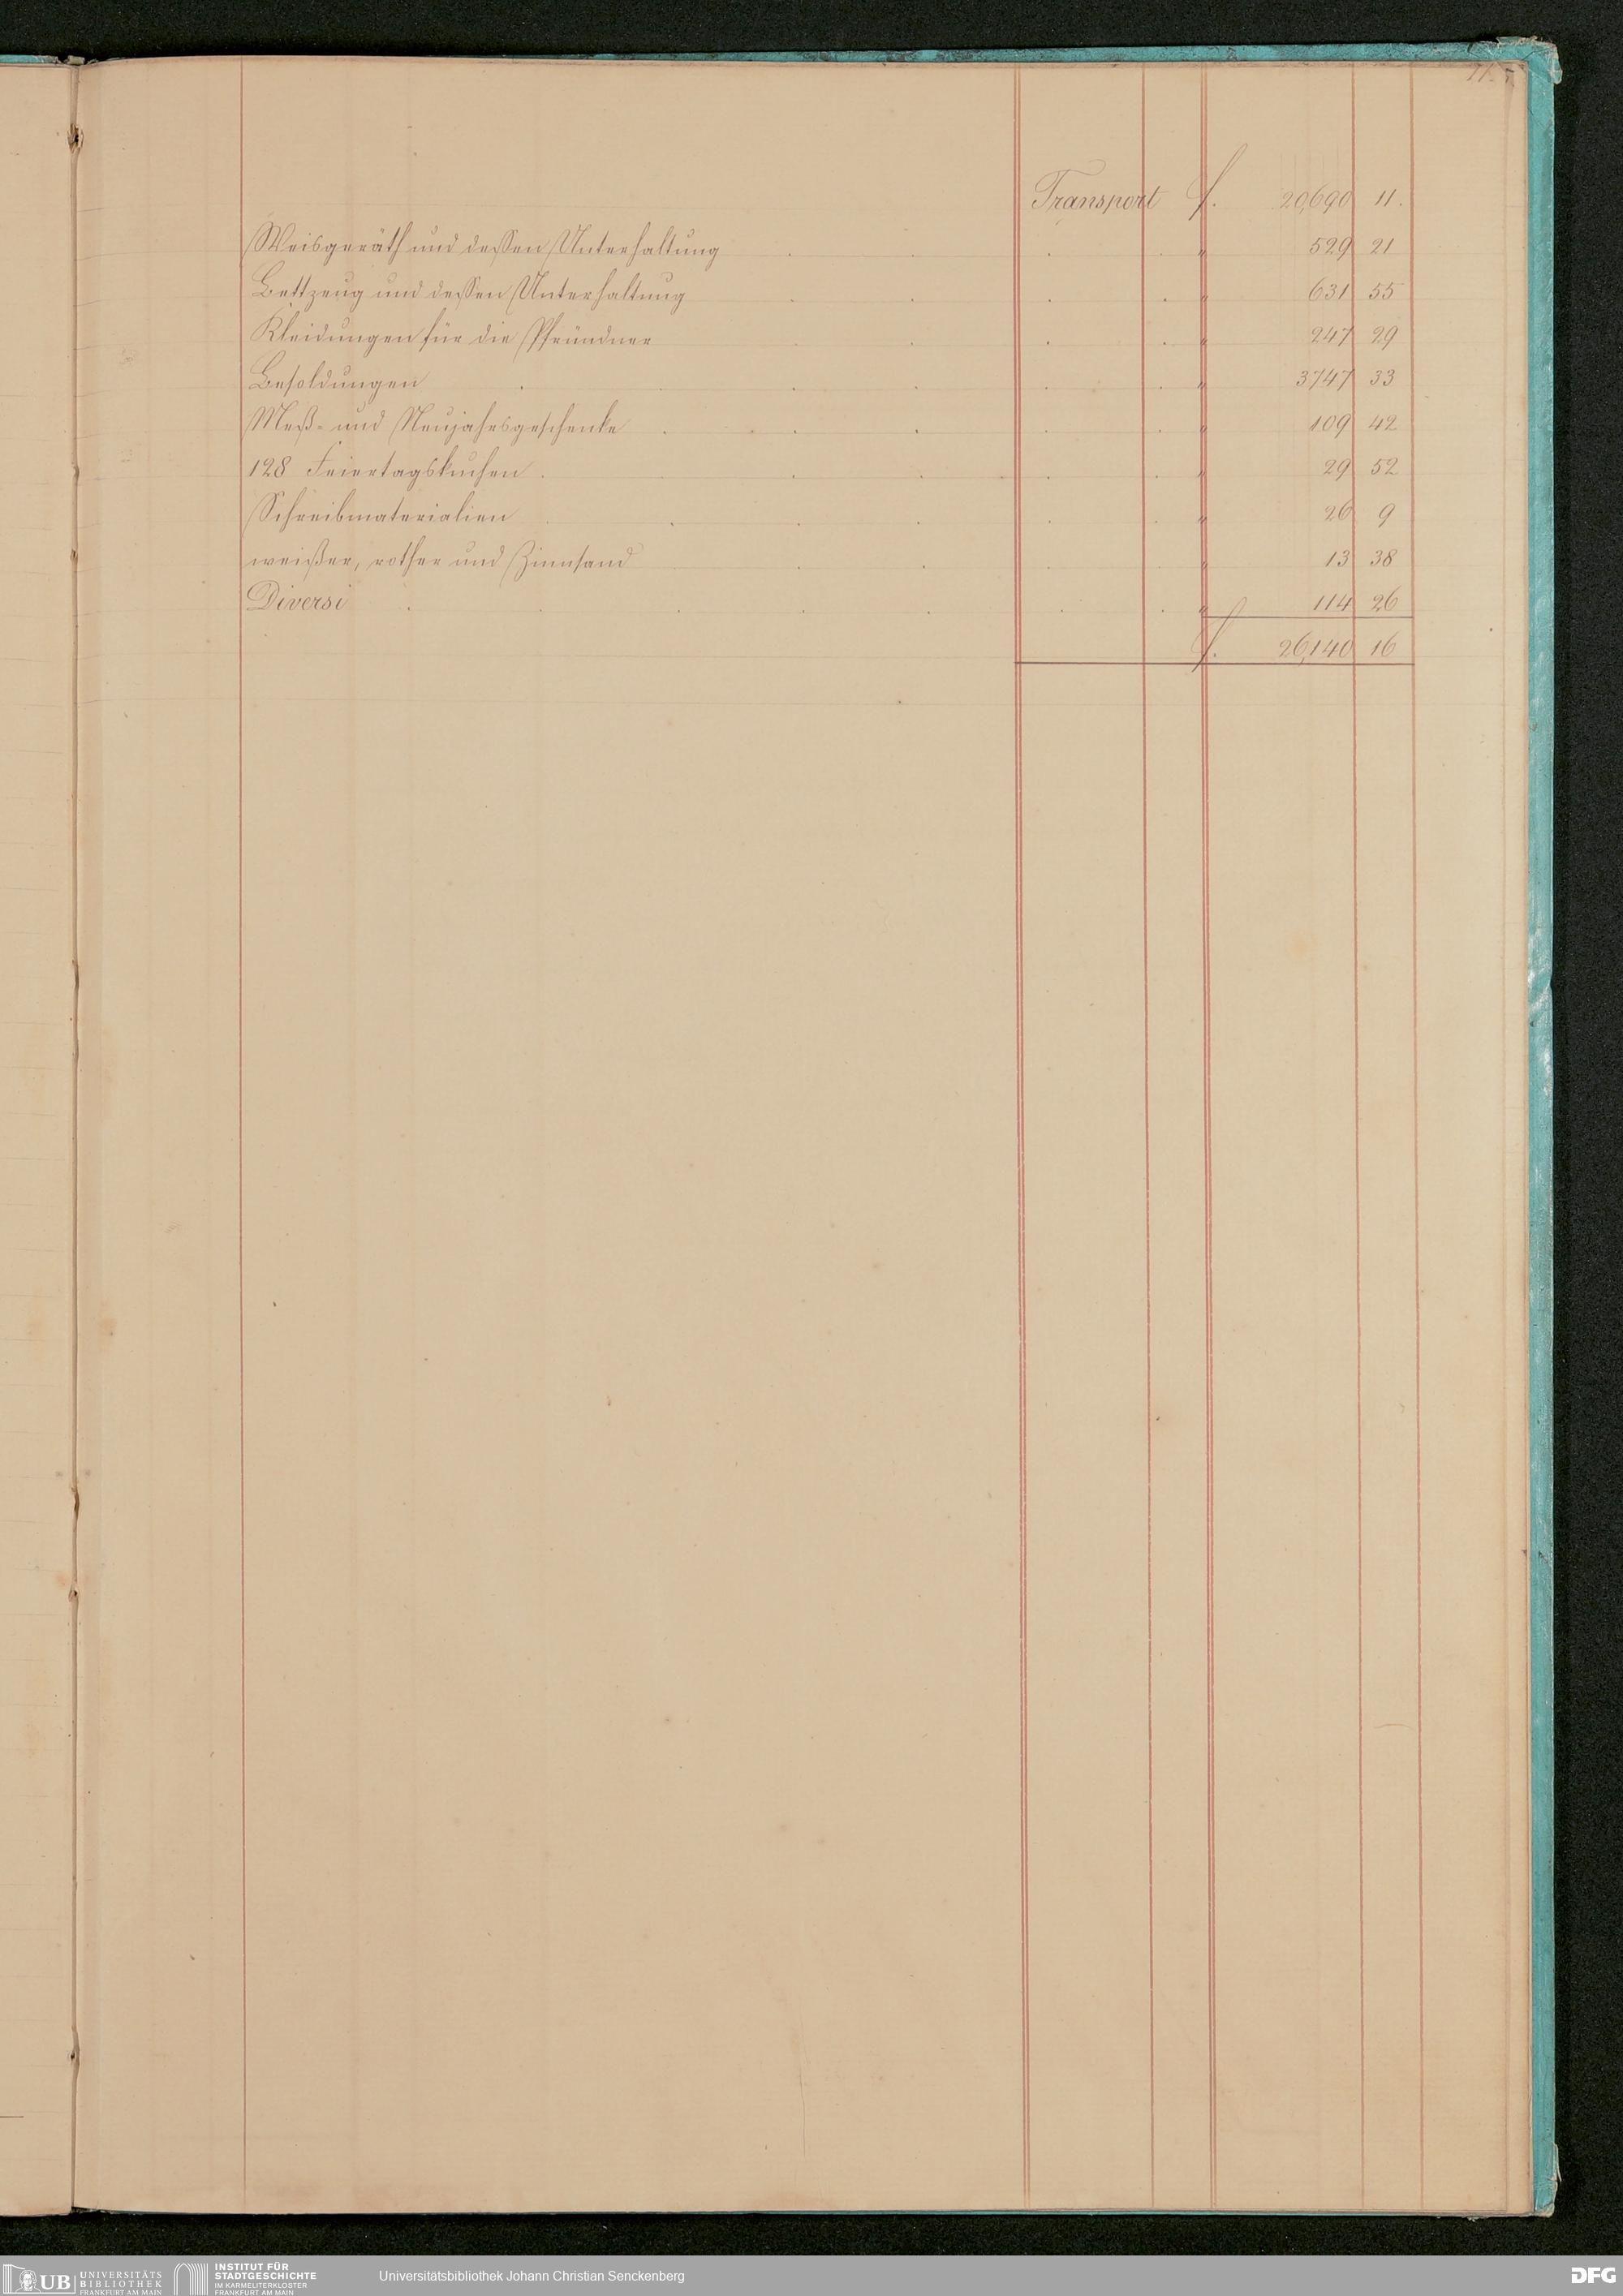 Transport f. 20,690 11.
Weisgeräth und dessen Unterhaltung . . . . " 529 21
Bettzeug und dessen Unterhaltung . . . . " 631 55
Kleidungen für die Pfründner . . . . " 247 29
Besoldungen . . . . . " 3747 33
Meß- und Neujahrsgeschenke . . . . . " 109 42
128 Feiertagskuchen . . . . . . " 29 52
Schreibmaterialien . . . . . . " 26 9
weißer, rother und Zinnsand . . . . " 13 38
Diversi . . . . . . . " 114 26
f. 26,140 16
UB UNIVERSITÄTS
BIBLIOTHEK
FRANKFURT AM MAIN
INSTITUT FÜR
STADTGESCHICHTE
IM KARMELITERKLOSTER
FRANKFURT AM MAIN
Universitätsbibliothek Johann Christian Senckenberg
DFG